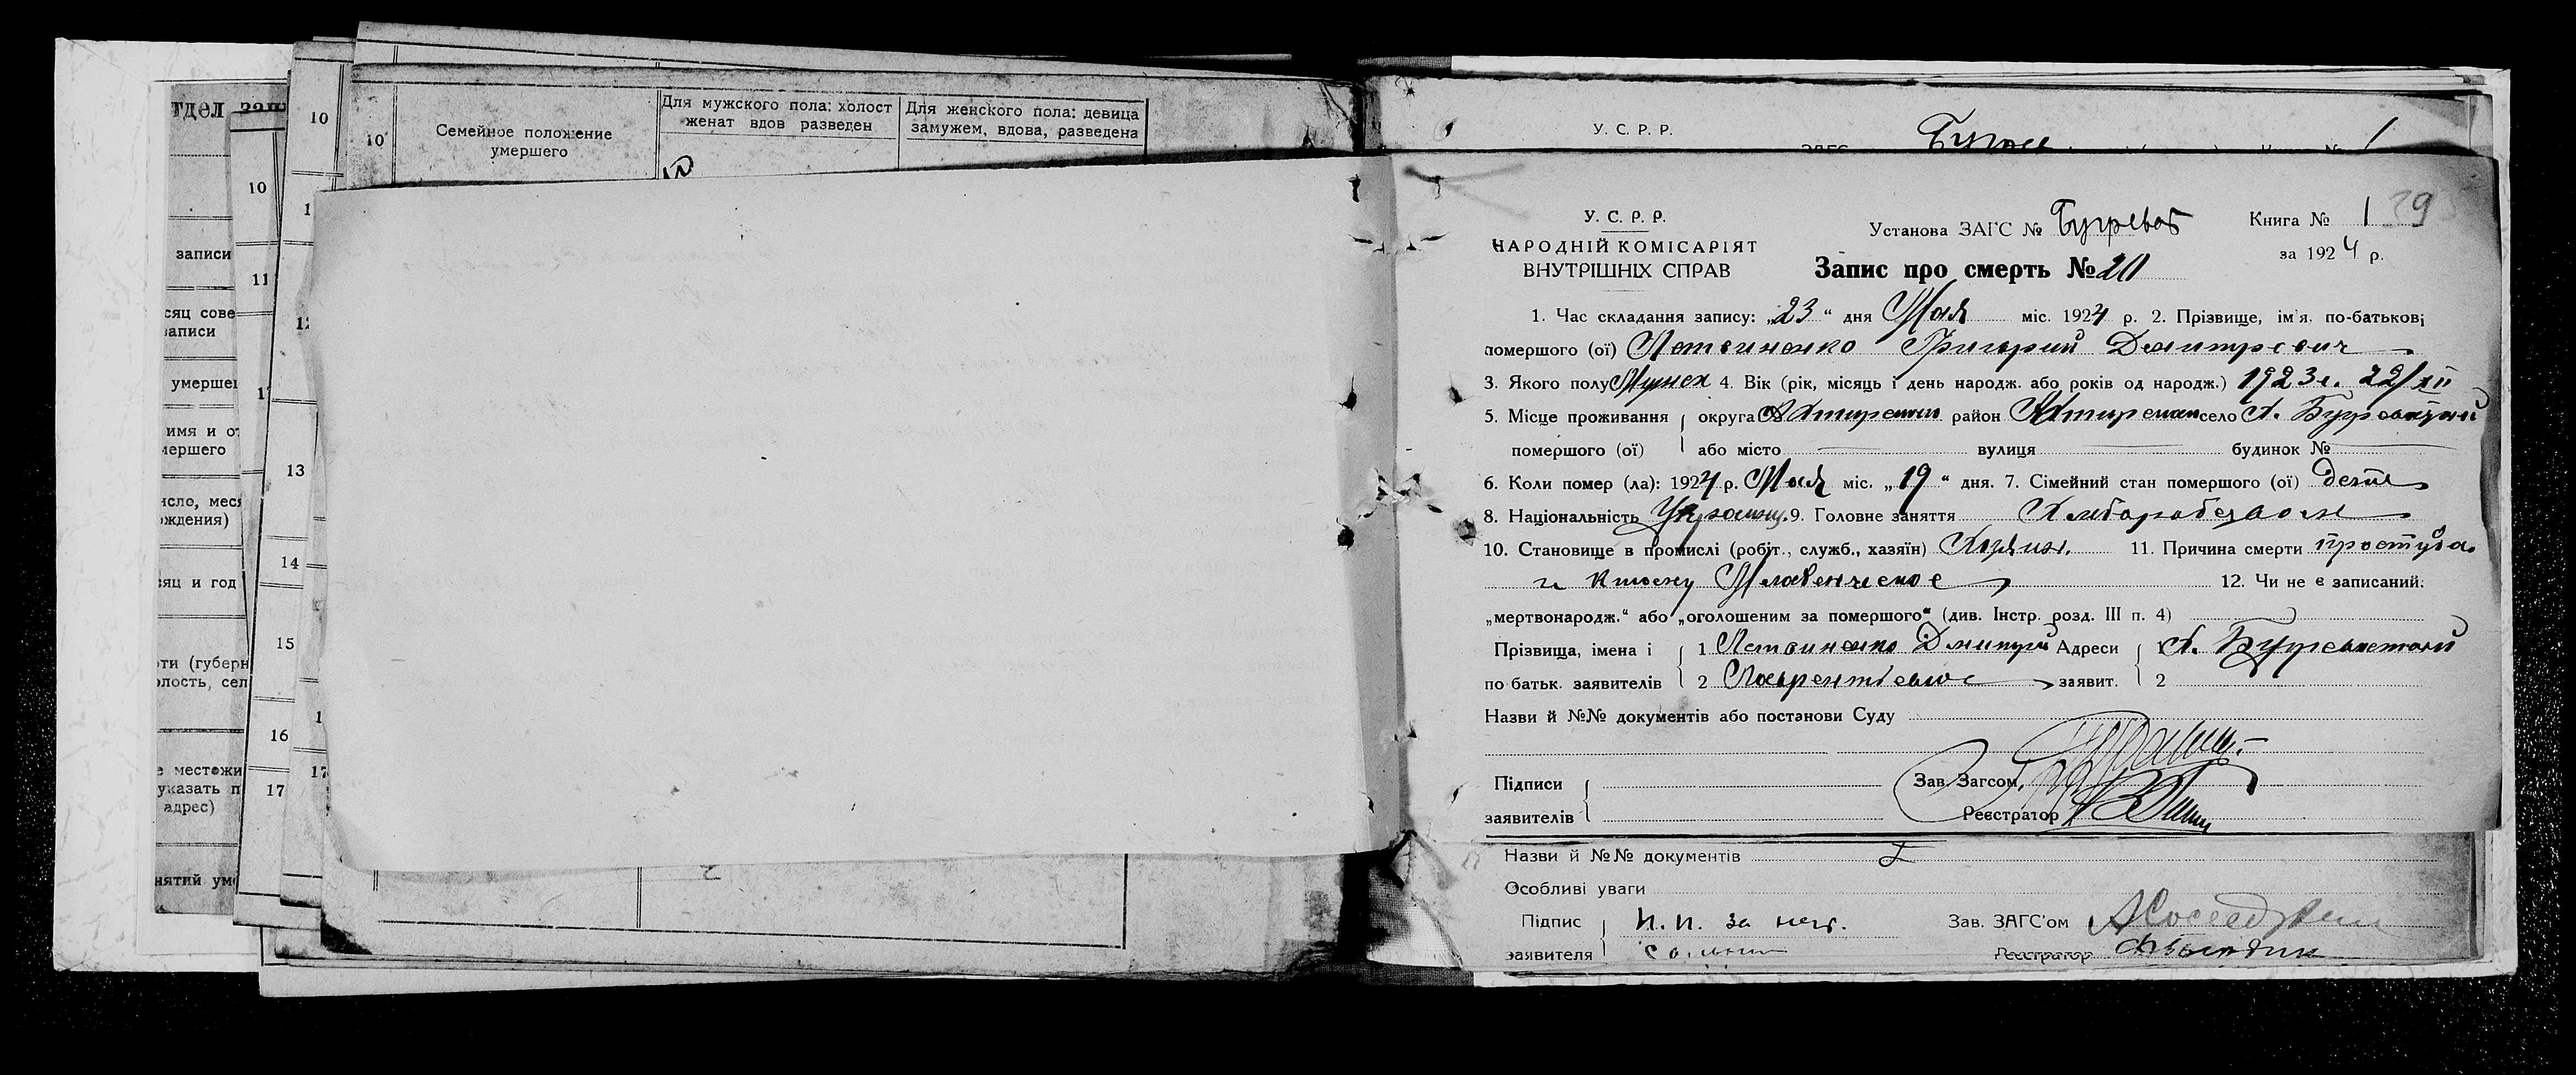 тдел зап
10
10
10
Семейное положение
умершего
Для мужского пола: холост
женат вдов разведен
Для женского пола: девица
замужем, вдова, разведена
записи
11
сяц сове
записи
умершег
имя и от
мершего
13
исло, меся
ождения)
14
яц и год
15
ти (губерн
олость, сел
16
е местожи
указать п
адрес)
17
17
нятий уме
У. С. Р. Р.
У. С. Р. Р.
НАРОДНІЙ КОМІСАРІЯТ
ВНУТРІШНІХ СПРАВ
Установа ЗАГС №
Книга № 1 29
за 1924 р.
Запис про смерть № 20
1. Час складання запису: „23“ дня Мая міс. 1924 р. 2. Прізвище, ім'я, по-батькові
помершого (ої) Литвиненко Григорий Дмитревич
3. Якого полу Мужск 4. Вік (рік, місяць і день народж. або років од народж.) 1923 г. 22/XII
5. Місце проживання округа район село Х.
помершого (ої) або місто вулиця будинок №
6. Коли помер (ла): 1924 р. Мая міс. „19“ дня. 7. Сімейний стан помершого (ої) дитя
8. Національність Украинц. 9. Головне заняття
10. Становище в промислі (робіт., служб., хазяїн) Хозяин. 11. Причина смерти простуда
и к тому Младенческое 12. Чи не є записаний:
„мертвонародж.“ або „оголошеним за помершого“ (див. Інстр. розд. III п. 4)
Прізвища, імена і 1 Литвиненко Дмитрий Адреси 1 Х.
по батьк. заявителів 2 Лаврентьевич заявит. 2
Назви й №№ документів або постанови Суду
Підписи Зав. Загсом,
заявителів Реєстратор
Назви й №№ документів
Особливі уваги
Підпис Н. п. за нег. Зав. ЗАГС'ом
заявителя Реєстратор